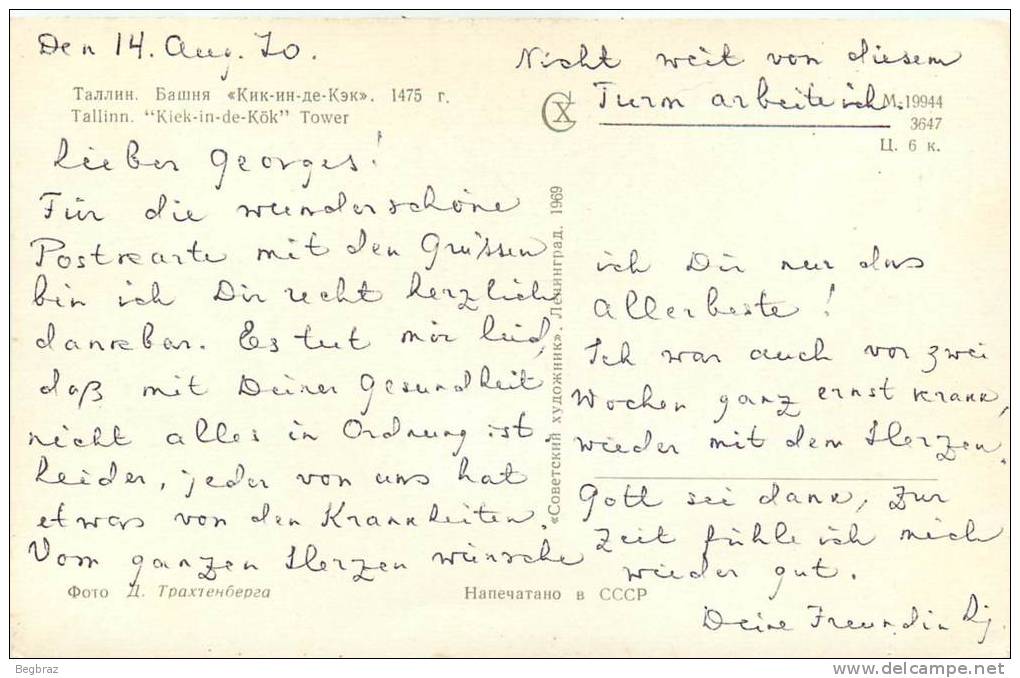 Den 14. Aug. 70.
Таллин. Башня «Кик-ин-де-Кэк». 1475 г.
Tallinn. "Kiek-in-de-Kök" Tower
Lieber Georges!
Für die wunderschöne
Postkarte mit den Grüssen
bin ich Dir recht herzlich
dankbar. Es tut mir leid,
daß mit Deiner Gesundheit
nicht alles in Ordnung ist.
Leider, jeder von uns hat
etwas von den Krankheiten.
Vom ganzen Herzen wünsche
Фото Д. Трахтенберга
«Советский художник». Ленинград. 1969
Напечатано в СССР
Nicht weit von diesem
Turm arbeite ich.
СХ
М-19944
3647
Ц. 6 к.
ich Dir nur das
Allerbeste!
Ich war auch vor zwei
Wochen ganz ernst krank,
wieder mit dem Herzen.
Gott sei dank, zur
Zeit fühle ich mich
wieder gut.
Deine Freundin
Begbraz
www.delcampe.net